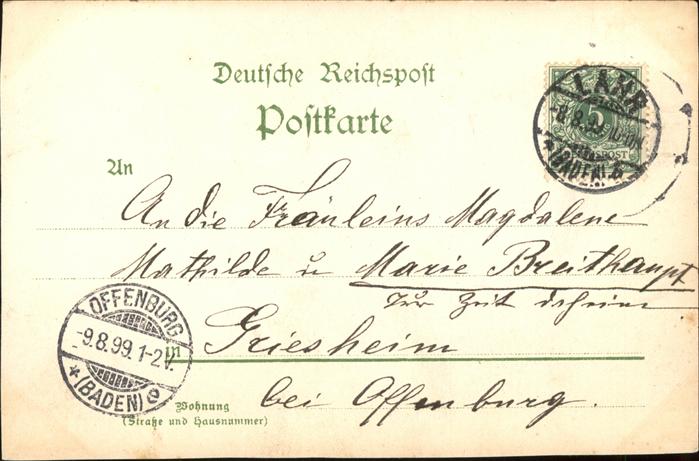 Deutsche Reichspost
Postkarte
LAHR
-8.8.99.
(BADEN)
5
REICHSPOST
An
An die Fräuleins Magdalene
Mathilde u Marie Breithaupt
zur Zeit daheim
OFFENBURG
-9.8.99.1-2V.
* (BADEN)
in Griesheim
bei Offenburg.
Wohnung
(Straße und Hausnummer)